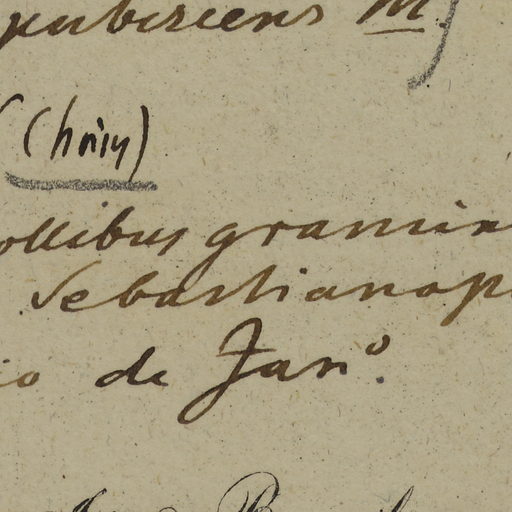 pubescens M
collibus gramin
Sebastianop
io de Janº.